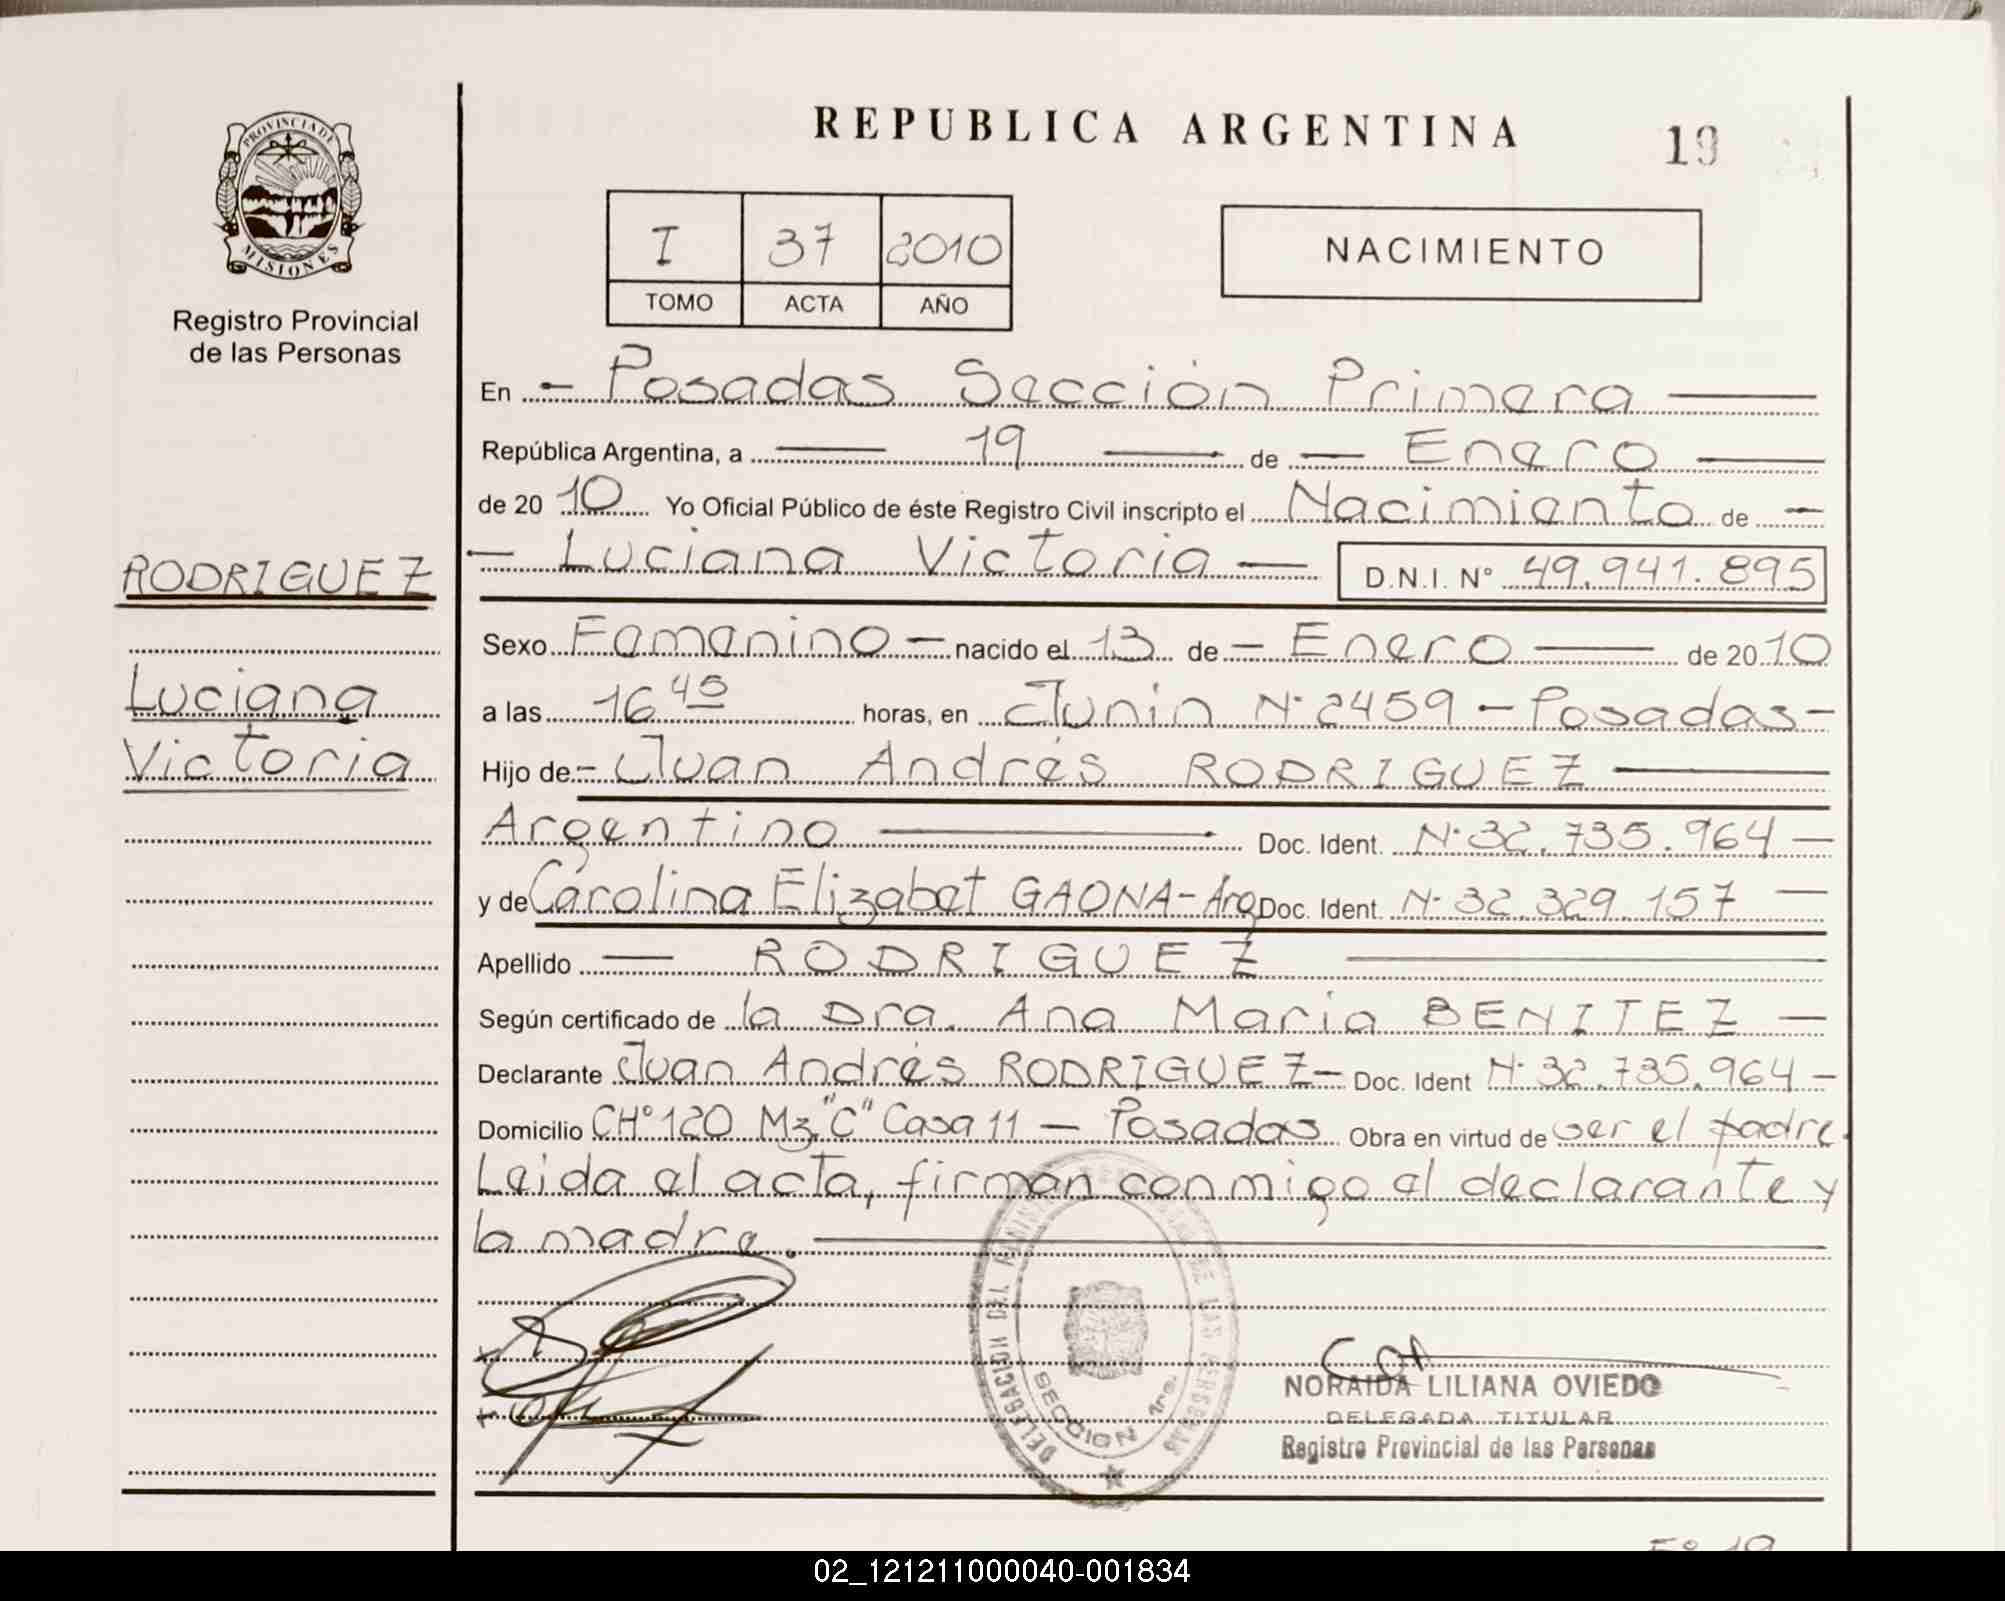 REPUBLICA ARGENTINA
19
PROVINCIA DE
MISIONES
Registro Provincial
de las Personas
I 37 2010
TOMO ACTA AÑO
NACIMIENTO
En - Posadas Sección Primera
República Argentina, a 19 de Enero
de 2010 Yo Oficial Público de éste Registro Civil inscripto el Nacimiento de -
- Luciana Victoria - D.N.I. N° 49.941.895
RODRIGUEZ
Luciana
Victoria
Sexo Femenino - nacido el 13 de - Enero de 2010
a las 16 45 horas, en Junin N° 2459 - Posadas -
Hijo de - Juan Andrés RODRIGUEZ
Argentino Doc. Ident. N° 32.735.964 -
y de Carolina Elizabet GAONA - Arg Doc. Ident. N° 32.329.157 -
Apellido - RODRIGUEZ
Según certificado de la Dra. Ana Maria BENITEZ -
Declarante Juan Andrés RODRIGUEZ - Doc. Ident N° 32.735.964 -
Domicilio CH° 120 Mz "C" Casa 11 - Posadas Obra en virtud de ser el padre.
Leida el acta, firman conmigo el declarante y
la madre.
DELEGACION DEL DE LAS PERSONAS
SECCION 1ra.
NORAIDA LILIANA OVIEDO
DELEGADA TITULAR
Registro Provincial de las Personas
02_121211000040-001834